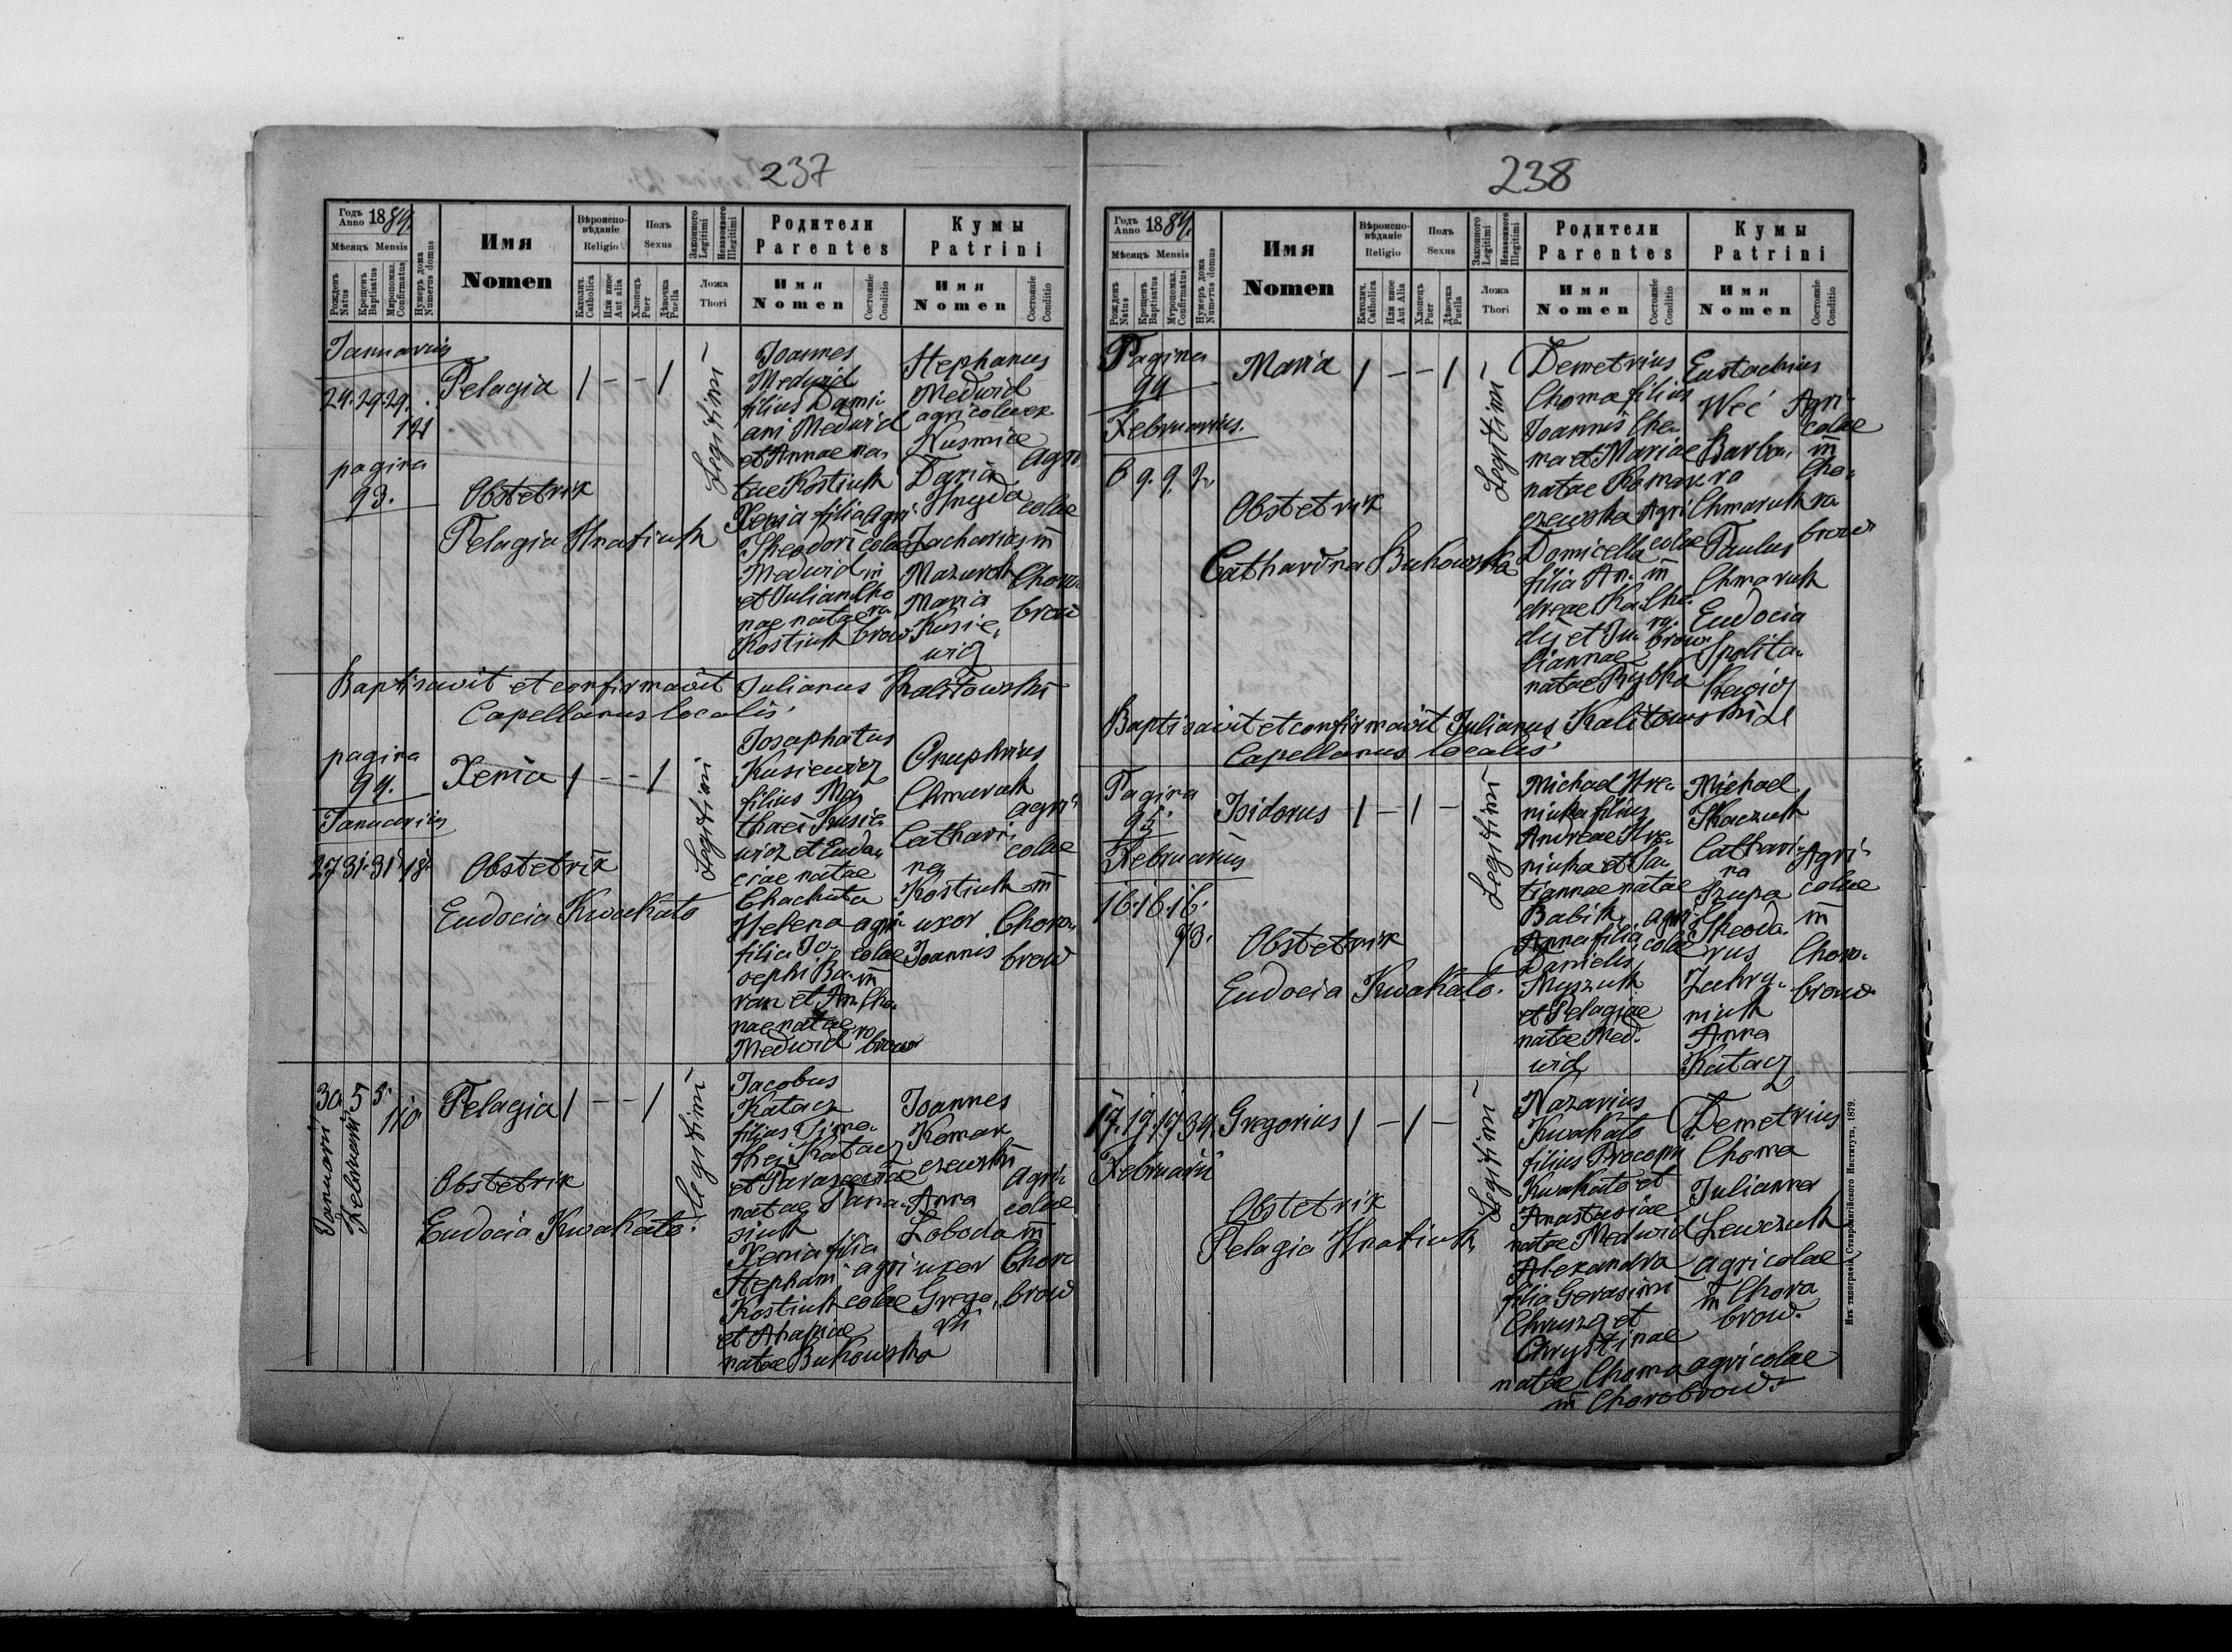 237
Годъ Anno 1884.
Мѣсяцъ Mensis
Рожденъ Natus
Крещенъ Baptisatus
Миропомаз. Confirmatus
Нумеръ дома Numerus domus
Имя
Nomen
Вѣроисповѣданіе
Religio
Католич. Catholica
Или иное Aut alia
Полъ
Sexus
Хлопецъ Puer
Дѣвочка Puella
Законного Legitimi
Незаконного Illegitimi
Ложа
Thori
Родители
Parentes
Имя
Nomen
Состояніе Conditio
Кумы
Patrini
Имя
Nomen
Состояніе Conditio
Januarius
24. 29. 29.
121
pagina
93.
Pelagia
1 - - 1
Legitimi
Obstetrix
Pelagia Hnatiuk
Joannes
Medwid
filius Dami-
ani Medwid
et Annae na-
tae Kostiuk
Xenia filia
Theodori
Medwid
et Julian-
nae natae
Kostiuk
agri-
colae
in
Cho
ro-
brow
Stephanus
Medwid
agricola ex
Kusmice
Daria
Hnyda
Zacharias
Mazurok
Maria
Kusie-
wicz
agri-
colae
in
Choro-
brow
Baptisavit et confirmavit Julianus Kalitowski
Capellanus localis
pagina
94.
Januarius
27 31. 31. 18.
Xenia
1 - - 1
Legitimi
Obstetrix
Eudocia Kwakato
Josaphatus
Kusiewicz
filius Ma
thaei Kusie-
wicz et Eudo-
ciae natae
Chachuta
Helena
filia Jo-
sephi Ba-
ran et An-
nae natae
Medwid
agri-
colae
in
Cho-
ro
brow
Onuphrius
Chmaruk
Cathari-
na
Kostiuk
uxor
Joannis
agri-
colae
in
Choro-
brow
30 5 5. 110
Januarii
Februarii
Pelagia
1 - - 1
Legitimi
Obstetrix
Eudocia Kwakato.
Jacobus
Katacz
filius Timo-
thei Katacz
et Parasceviae
natae Pana-
siuk
Xenia filia
Stephani
Kostiuk
et Ahapiae
natae Bukowska
agri-
colae
Joannes
Komar
czewski
Anna
Loboda
uxor
Grego-
rii
agri-
colae
in
Choro
brow
238
Годъ Anno 1884.
Мѣсяцъ Mensis
Рожденъ Natus
Крещенъ Baptisatus
Мѵропомаз. Confirmatus
Нумеръ дома Numerus domus
Имя
Nomen
Вѣроисповѣданіе
Religio
Католич. Catholica
Или иное Aut Alia
Полъ
Sexus
Хлопецъ Puer
Дѣвочка Puella
Законного Legitimi
Незаконного Illegitimi
Ложа
Thori
Родители
Parentes
Имя
Nomen
Состояніе Conditio
Кумы
Patrini
Имя
Nomen
Состояніе Conditio
Pagina
94
Februarius.
6 9. 9. 2
Maria
1 - - 1
Legitimi
Obstetrix
Catharina Bukowska
Demetrius
Choma filius
Joannis Cho-
ma et Mariae
natae Komar
czewska
Domicella
filia An-
dreae Ka
dij et Ju-
liannae
natae Rybka
Agri
colae
in
Cho-
ro-
brow
Eustachius
Weć
Barba-
ra
Chmaruk
Paulus
Chmaruk
Eudocia
Spolita-
kewicz
Agri-
colae
in
Cho-
ro
brow
Baptisavit et confirmavit Julianus Kalitowski
Capellanus localis
Pagina
95.
Februarius
16. 16. 16.
73.
Isidorus
1 - 1 -
Legitimi
Obstetrix
Eudocia Kwakato.
Michael Hre-
niuka filius
Andreae Hre-
niuka et Ta-
tiannae natae
Babik.
Anna filia
Danielis
Myszuk
et Pelagiae
natae Med-
wid
agri
colae
Michael
Tkaczuk
Cathari-
na
Szupa
Theodo-
rus
Zahry-
niuk
Anna
Katacz
Agri-
colae
in
Choro-
brow
17. 17. 17 34.
Februarii
Gregorius
1 - 1 -
Legitimi
Obstetrix
Pelagia Hnatiuk
Nazarius
Kwakato
filius Procopii
Kwakato et
Anastasiae
natae Medwid
Alexandra
filia Gerasimi
Chruszcz et
Chrystinae
natae Choma agricolae
in Chorobrow.
Demetrius
Choma
Julianna
Lewczuk
agricolae
in Choro
brow.
Изъ типографіи Ставропигійского Института, 1879.